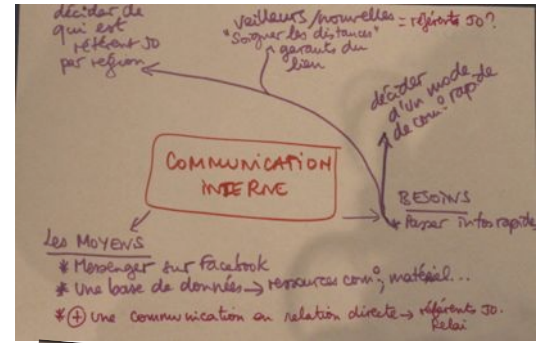 décider de
qui est
référent JO
par région
veilleurs/nouvelles = référents JO?
"Soigner les distances"
garants du
lien
décider
d'un mode
de com° rapide
COMMUNICATION
INTERNE
BESOINS
* Passer infos rapide
Les MOYENS
* Messenger sur Facebook
* Une base de données → ressources com°, matériel...
* + une communication en relation directe → référents JO.
Relai